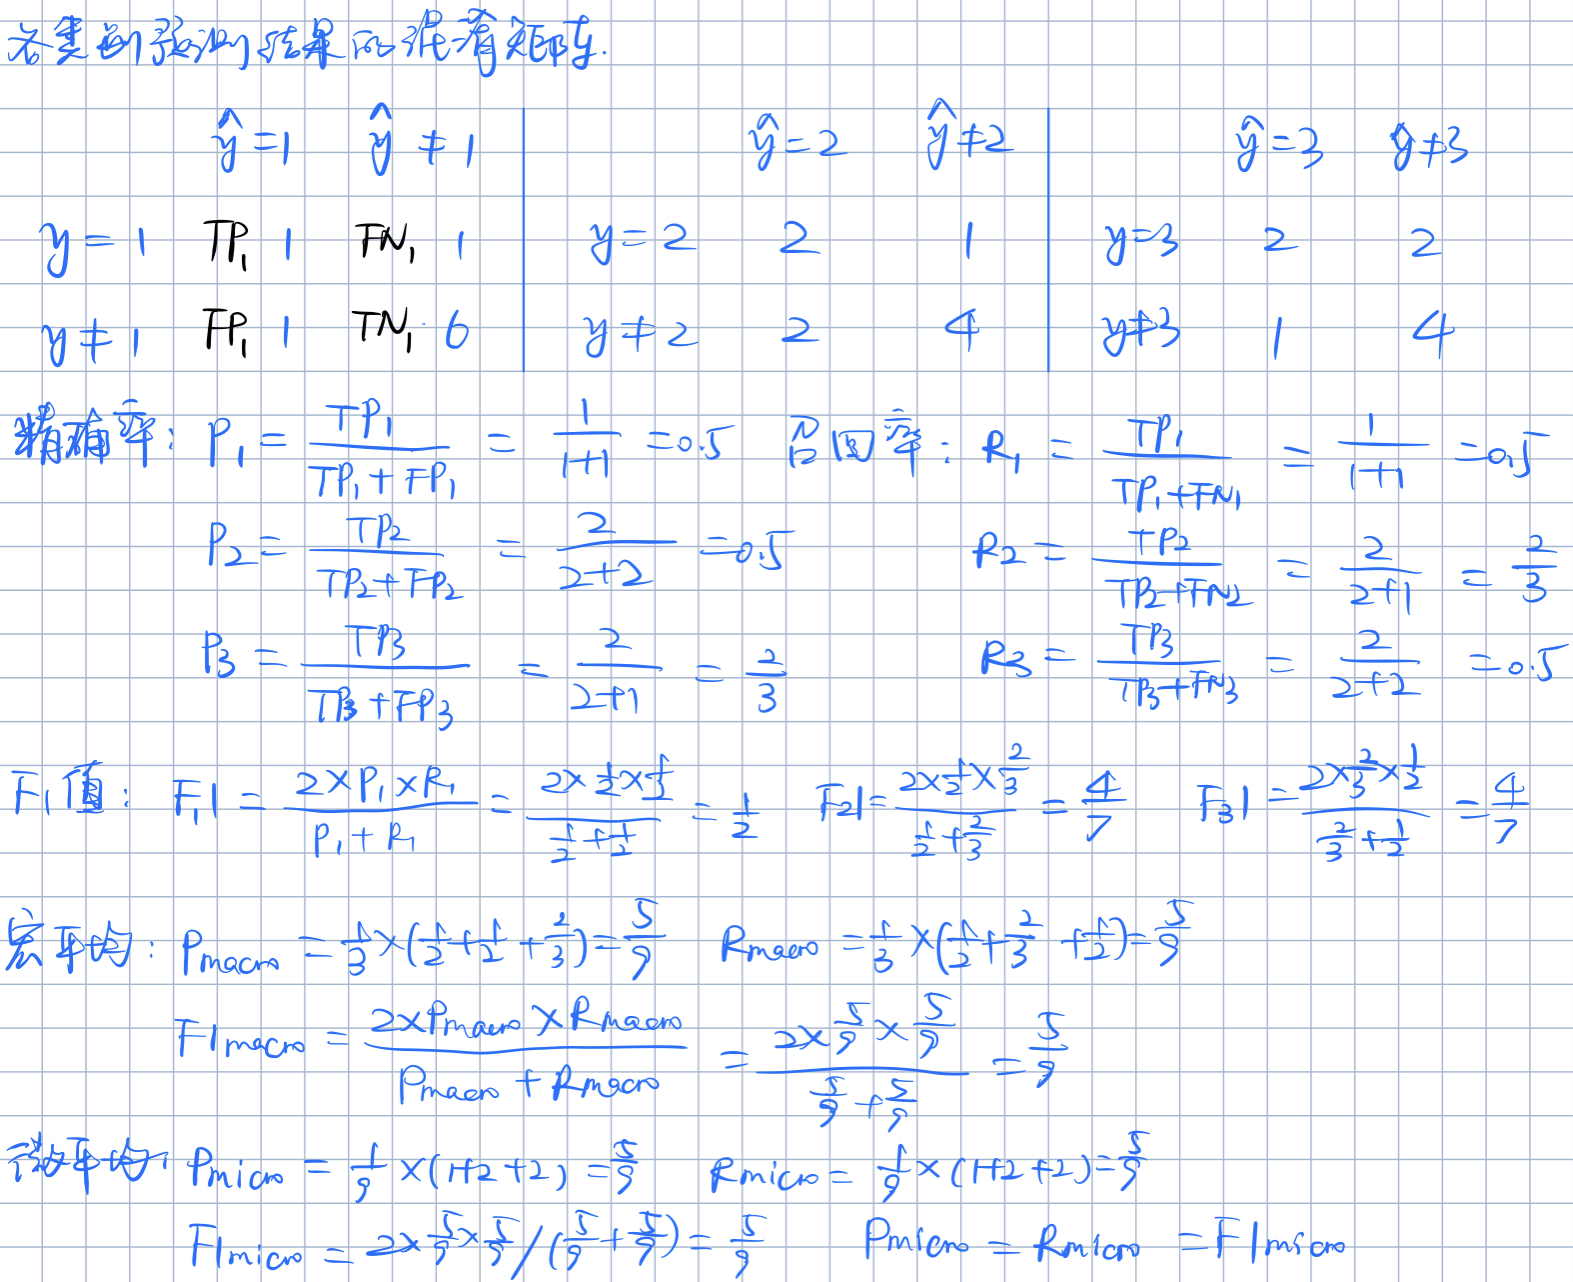 各类别预测结果的混淆矩阵.
ŷ=1 ŷ≠1 ŷ=2 ŷ≠2 ŷ=3 ŷ≠3
y=1 TP₁ 1 FN₁ 1 y=2 2 1 y=3 2 2
y≠1 FP₁ 1 TN₁ 6 y≠2 2 4 y≠3 1 4
精确率: P₁ = TP₁/(TP₁+FP₁) = 1/(1+1) =0.5 召回率: R₁ = TP₁/(TP₁+FN₁) = 1/(1+1) =0.5
P₂ = TP₂/(TP₂+FP₂) = 2/(2+2) =0.5 R₂ = TP₂/(TP₂+FN₂) = 2/(2+1) = 2/3
P₃ = TP₃/(TP₃+FP₃) = 2/(2+1) = 2/3 R₃ = TP₃/(TP₃+FN₃) = 2/(2+2) =0.5
F₁值: F₁1 = (2×P₁×R₁)/(P₁+R₁) = (2×1/2×1/2)/(1/2+1/2) = 1/2 F₂1 = (2×1/2×2/3)/(1/2+2/3) = 4/7 F₃1 = (2×2/3×1/2)/(2/3+1/2) = 4/7
宏平均: Pmacro = 1/3×(1/2+1/2+2/3)=5/9 Rmacro = 1/3×(1/2+2/3+1/2)=5/9
F1macro = (2×Pmacro×Rmacro)/(Pmacro+Rmacro) = (2×5/9×5/9)/(5/9+5/9) = 5/9
微平均: Pmicro = 1/9×(1+2+2) = 5/9 Rmicro = 1/9×(1+2+2)=5/9
F1micro = 2×5/9×5/9/(5/9+5/9) = 5/9 Pmicro = Rmicro = F1micro